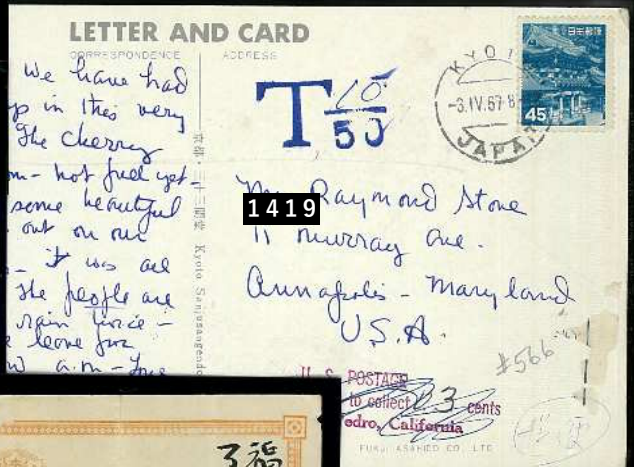 LETTER AND CARD
CORRESPONDENCE ADDRESS
We have had
in this very
The Cherry
not full yet -
some beautiful
out on our
it was all
The people are
rain twice -
leave for
a.m -
京都・三十三間堂 Kyoto Sanjusangendo
T 10/50
KYOT
-3.IV.67-8
JAPA
日本郵便
45
1419
Raymond Stone
11 Murray Ave.
Annapolis - Maryland
U.S.A.
#566
U. S. POSTAGE
to collect 3 cents
edro, California
FUKUI ASAHIDO CO. LTD